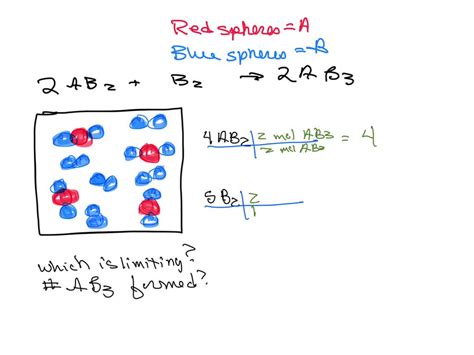 Red spheres = A
Blue spheres = B
2 AB2 + B2 → 2 AB3
4 AB2 | 2 mol AB3 = 4
2 mol AB2
5 B2 | 2
1
which is limiting?
# AB3 formed?